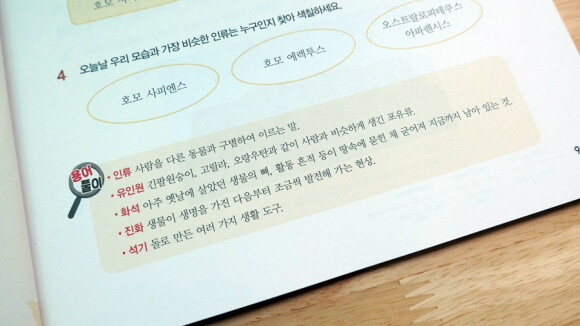 호모 사
4 오늘날 우리 모습과 가장 비슷한 인류는 누구인지 찾아 색칠하세요.
호모 사피엔스
호모 에렉투스
오스트랄로피테쿠스
아파렌시스
용어
풀이
• 인류 사람을 다른 동물과 구별하여 이르는 말.
• 유인원 긴팔원숭이, 고릴라, 오랑우탄과 같이 사람과 비슷하게 생긴 포유류.
• 화석 아주 옛날에 살았던 생물의 뼈, 활동 흔적 등이 땅속에 묻힌 채 굳어져 지금까지 남아 있는 것.
• 진화 생물이 생명을 가진 다음부터 조금씩 발전해 가는 현상.
• 석기 돌로 만든 여러 가지 생활 도구.